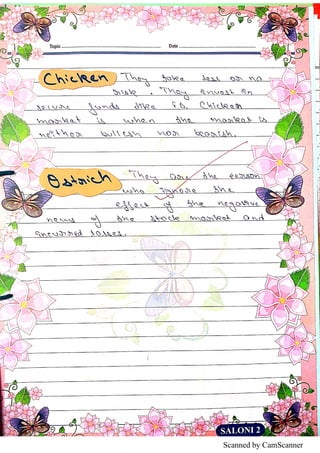 Topic Date
Chicken They take less or no
risk. They invest in
secure funds like F.D. Chicken
market is when the market is
neither bullish nor bearish.
Ostrich They are the person
who ignore the
effect of the negative
news of the stock market and
incurred losses.
SALONI 2
Scanned by CamScanner